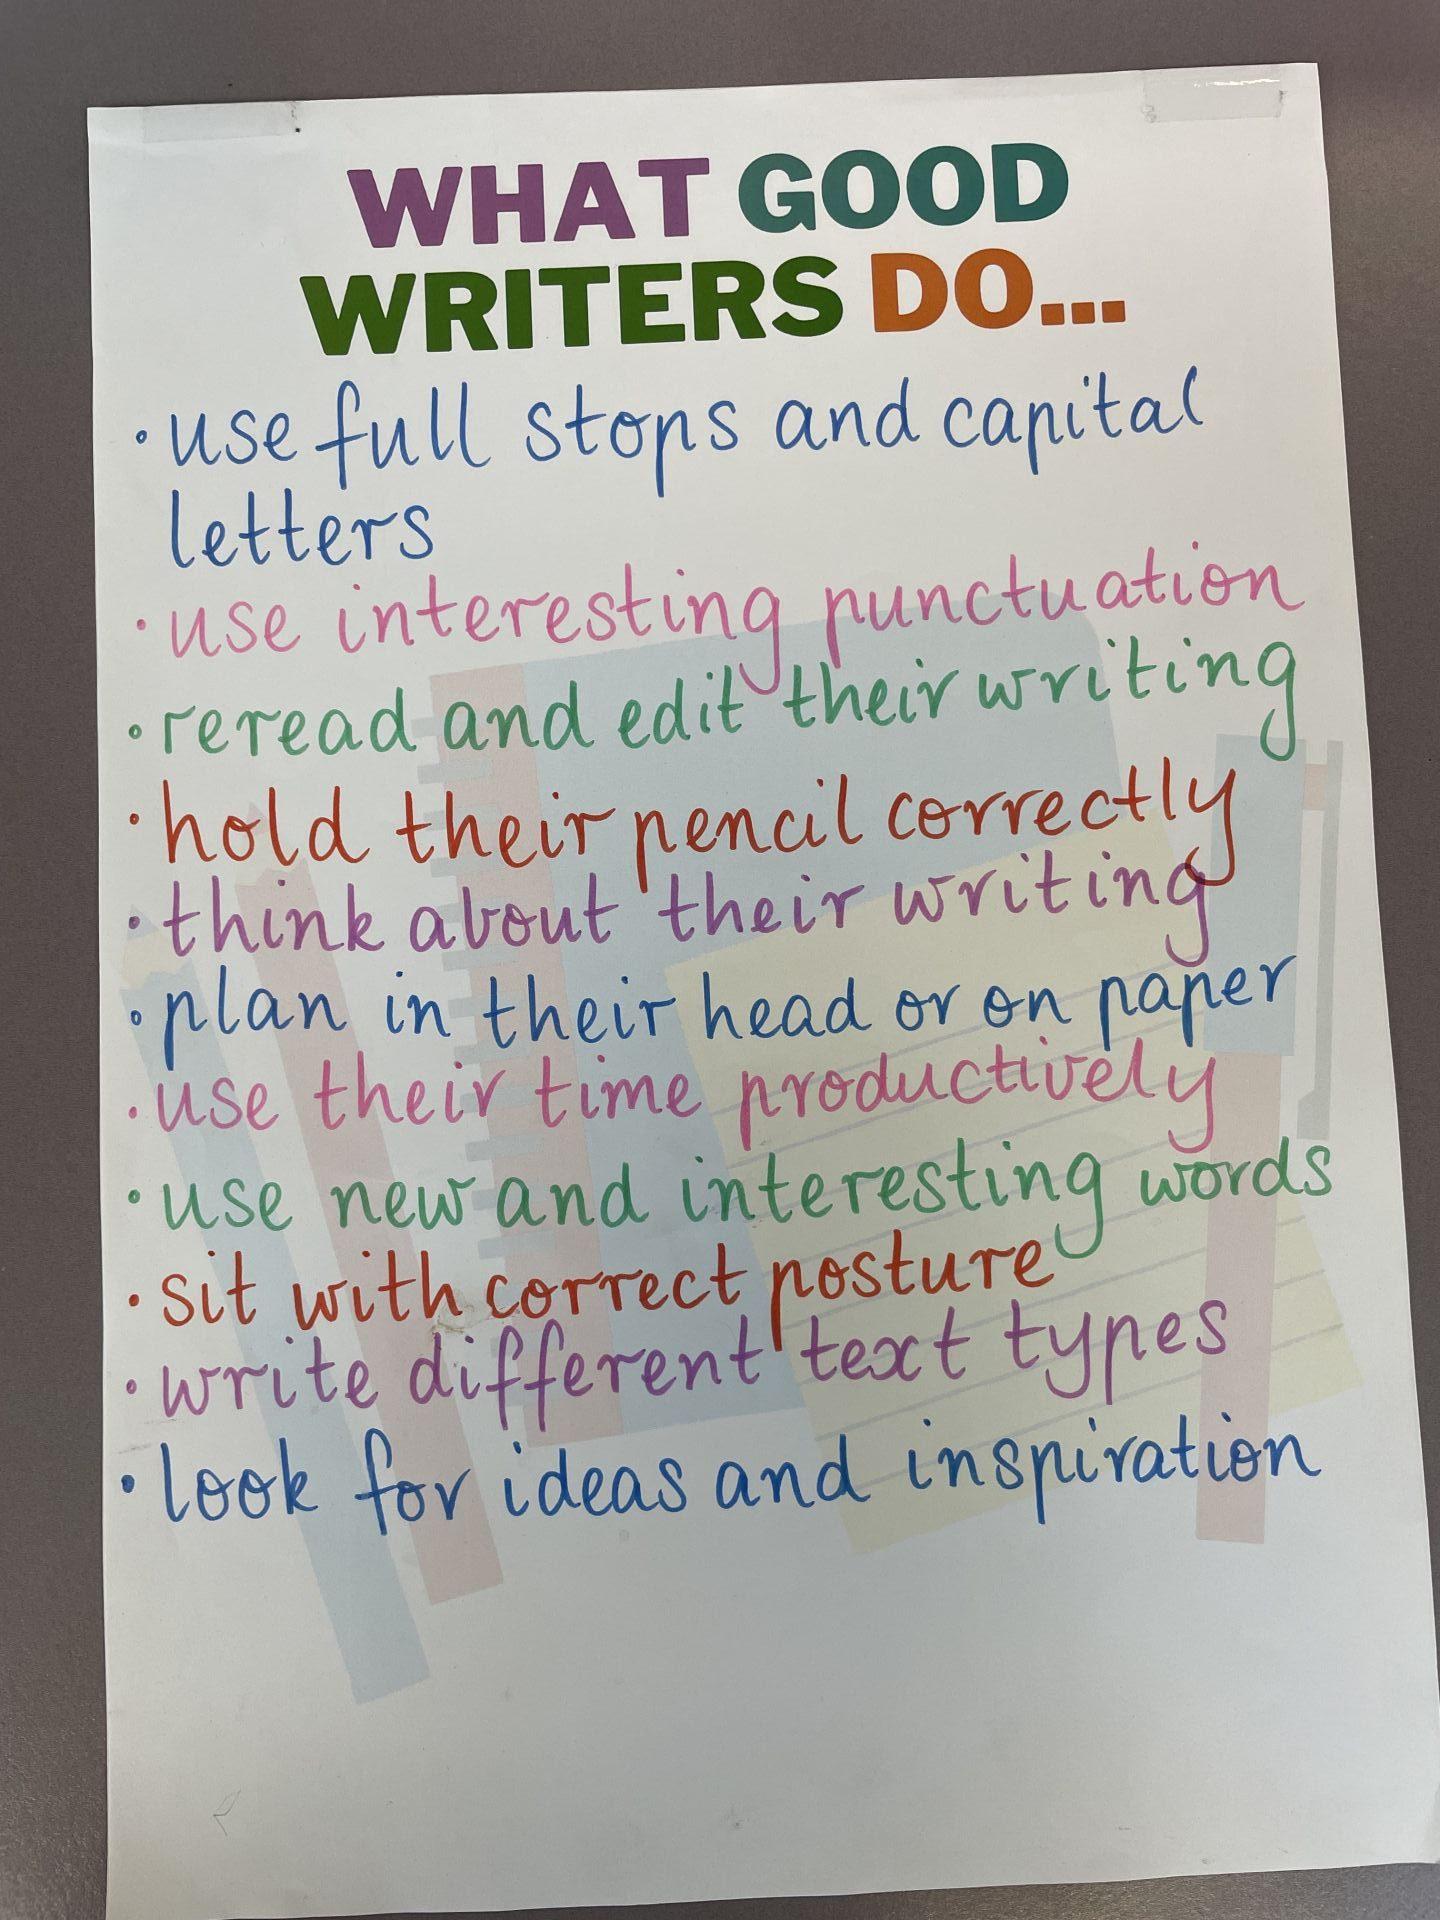 WHAT GOOD
WRITERS DO...
• use full stops and capital
letters
• use interesting punctuation
• reread and edit their writing
• hold their pencil correctly
• think about their writing
• plan in their head or on paper
• use their time productively
• use new and interesting words
• sit with correct posture
• write different text types
• look for ideas and inspiration